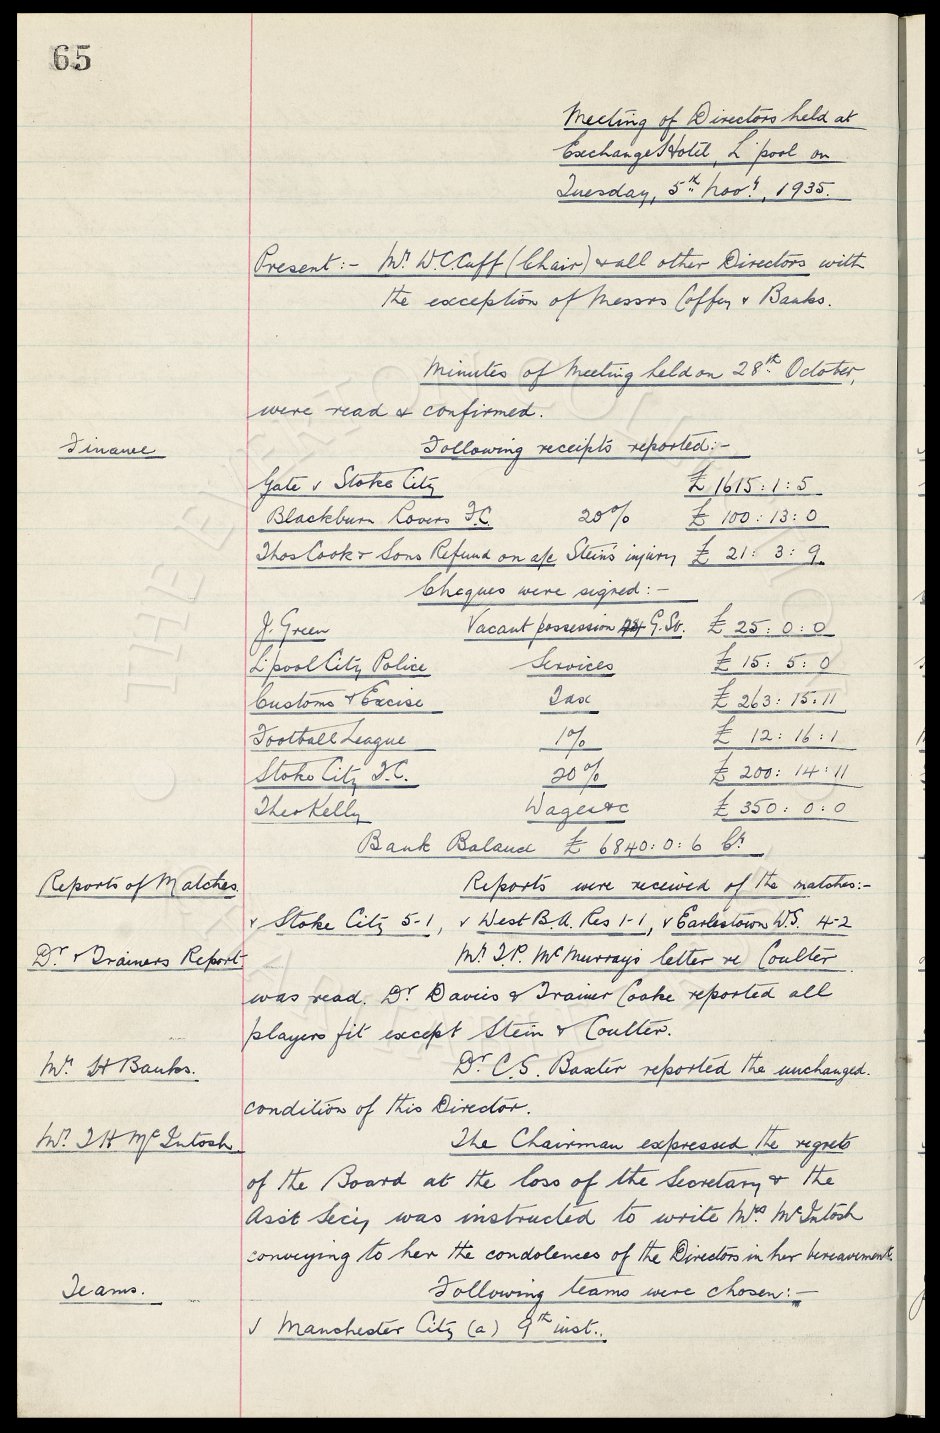 65
Meeting of Directors held at
Exchange Hotel, L'pool on
Tuesday, 5th Novr, 1935.
Present:- Mr. W.C. Cuff (Chair) & all other Directors with
the exception of Messrs Coffey & Banks.
Minutes of Meeting held on 28th October,
were read & confirmed.
Finance Following receipts reported:-
Gate v Stoke City £ 1615 : 1 : 5
Blackburn Rovers F.C. 20% £ 100 : 13 : 0
Thos Cook & Sons Refund on a/c Stein's injury £ 21 : 3 : 9
Cheques were signed:-
J. Green Vacant possession G. Sv. £ 25 : 0 : 0
L'pool City Police Services £ 15 : 5 : 0
Customs & Excise Tax £ 263 : 15 : 11
Football League 1% £ 12 : 16 : 1
Stoke City F.C. 20% £ 200 : 14 : 11
Theo Kelly Wages &c £ 350 : 0 : 0
Bank Balance £ 6840 : 0 : 6 Cr
Reports of Matches Reports were received of the matches:-
v Stoke City 5-1, v West B.A. Res 1-1, v Earlestown W.S. 4-2
Dr. & Trainers Report Mr. T.P. McMurray's letter re Coulter
was read. Dr. Davies & Trainer Cooke reported all
players fit except Stein & Coulter.
Mr. H Banks. Dr. C.S. Baxter reported the unchanged
condition of this Director.
Mr. T H McIntosh The Chairman expressed the regrets
of the Board at the loss of the Secretary & the
Asst Secy was instructed to write Mrs McIntosh
conveying to her the condolences of the Directors in her bereavement.
Teams. Following teams were chosen:-
v Manchester City (a) 9th inst..
THE EVERTON COLLECTION